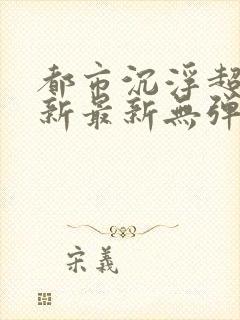 都市沉浮超
新最新無弹
宋義